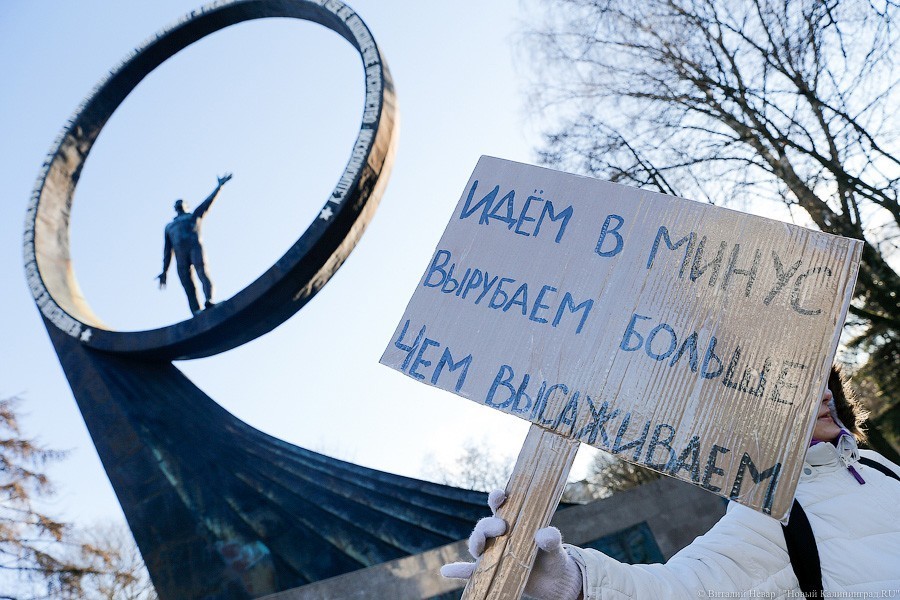 ИДЁМ В МИНУС
ВЫРУБАЕМ БОЛЬШЕ
ЧЕМ ВЫСАЖИВАЕМ
© Виталий Невар / "Новый Калининград.RU"